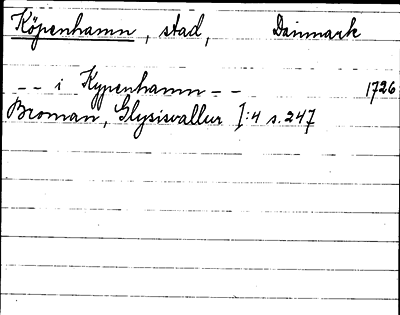 Köpenhamn, stad, Danmark
-- i Kypenhamn -- 1726
Broman, Glysisvallur I:4 s. 247